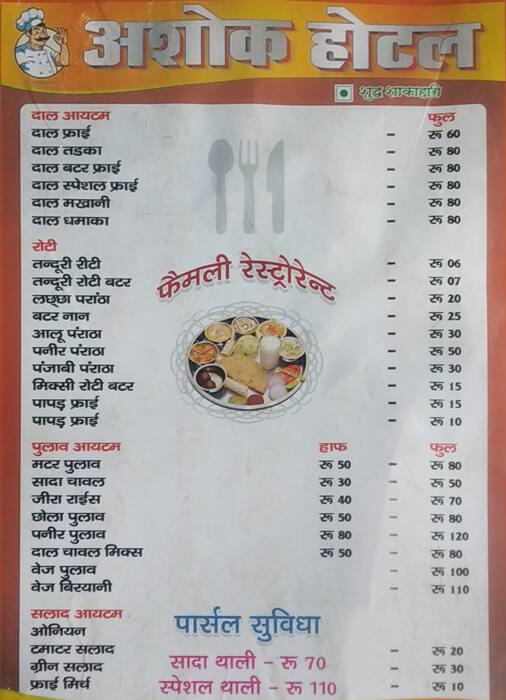 अशोक होटल
शुद्ध शाकाहारी
दाल आयटम फुल
दाल फ्राई - रू 60
दाल तडका - रू 80
दाल बटर फ्राई - रू 80
दाल स्पेशल फ्राई - रू 80
दाल मखानी - रू 80
दाल धमाका - रू 80
रोटी
फैमली रेस्ट्रोरेन्ट
तन्दूरी रीटी - रू 06
तन्दूरी रोटी बटर - रू 07
लछ्छा परांठा - रू 20
बटर नान - रू 25
आलू पंराठा - रू 30
पनीर पंराठा - रू 50
पंजाबी पंराठा - रू 30
मिक्सी रोटी बटर - रू 15
पापड़ फ्राई - रू 15
पापड़ फ्राई - रू 10
पुलाव आयटम हाफ फुल
मटर पुलाव रू 50 - रू 80
सादा चावल रू 30 - रू 50
जीरा राईस रू 40 - रू 70
छोला पुलाव रू 50 - रू 80
पनीर पुलाव रू 80 - रू 120
दाल चावल मिक्स रू 50 - रू 80
वेज पुलाव - रू 100
वेज बिरयानी - रू 110
सलाद आयटम
ओनियन
टमाटर सलाद - रू 20
ग्रीन सलाद - रू 30
फ्राई मिर्च - रू 10
पार्सल सुविधा
सादा थाली - रू 70
स्पेशल थाली - रू 110